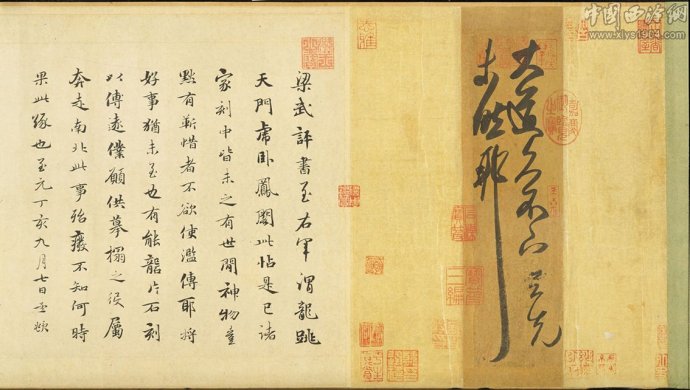 中国西泠网
www.xlys1904.com
大道久不下與先
未然耶
梁武評書至右軍謂龍跳
天門虎臥鳳閣此帖是已諸
家刻中皆未之有世間神物豈
默有靳惜者不欲使濫傳耶將
好事猶未至也有能龍片石刻
以傳遠僕願供摹搨之役屬
奔走南北此事殆廢不知何時
果此緣也至元丁亥九月七日孟頫